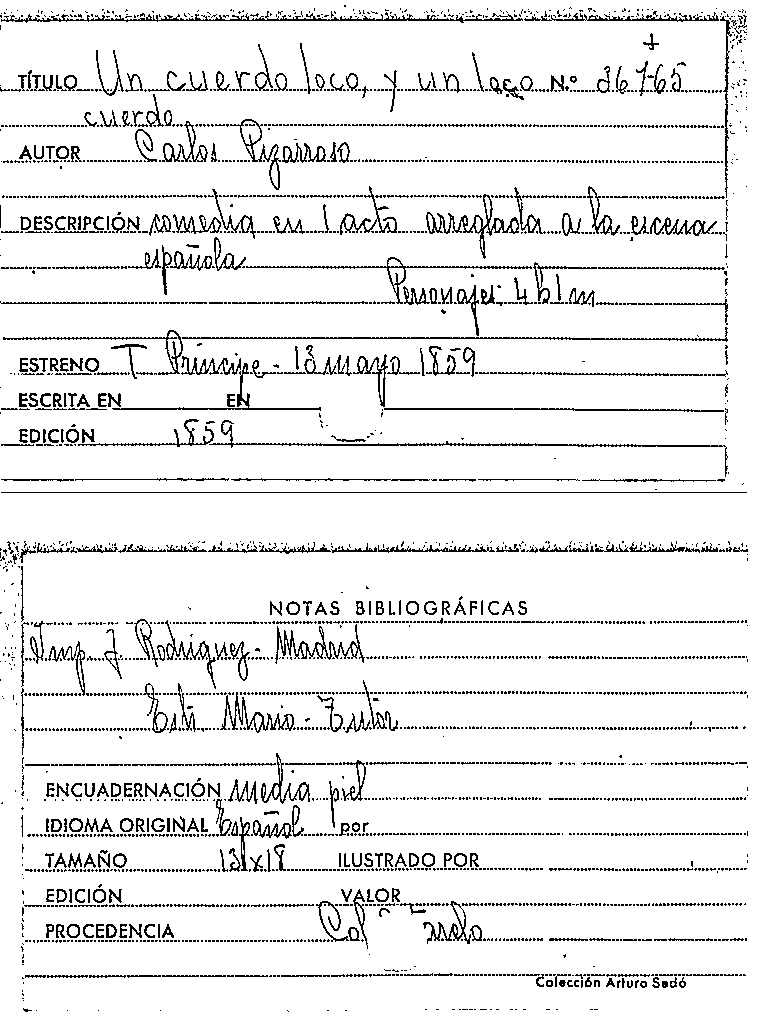 TÍTULO Un cuerdo loco, y un loco N.º 36765
cuerdo
AUTOR Carlos Pizarroso
DESCRIPCIÓN comedia en 1 acto arreglada a la escena
española
Personajes: 4 h 1 m
ESTRENO T Príncipe - 13 mayo 1859
ESCRITA EN EN
EDICIÓN 1859
NOTAS BIBLIOGRÁFICAS
Imp J. Rodriguez - Madrid
Mario - Tutor
ENCUADERNACIÓN media piel
IDIOMA ORIGINAL Español por
TAMAÑO 13x18 ILUSTRADO POR
EDICIÓN VALOR
PROCEDENCIA Col
Colección Arturo Sedó